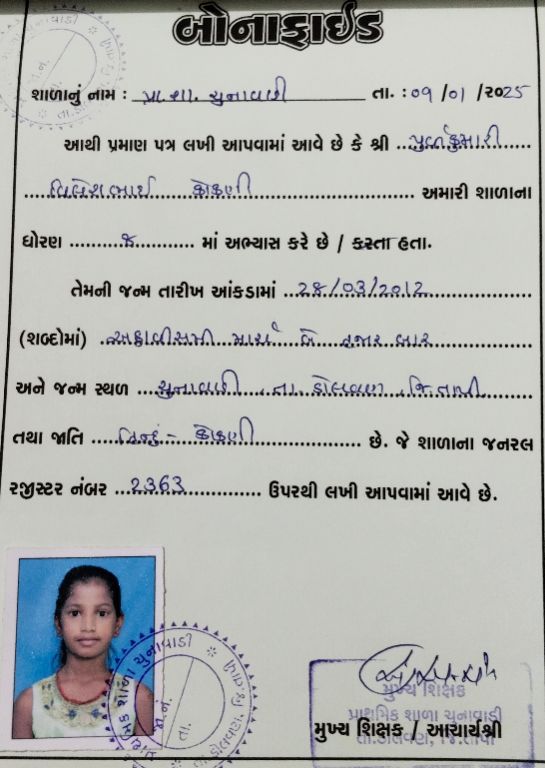 બોનાફાઈડ
શાળાનું નામ : પ્રા. શા. ચુનાવાડી તા. : 09 /01 /૨૦25
આથી પ્રમાણ પત્ર લખી આપવામાં આવે છે કે શ્રી ...પુર્વાકુમારી
...વિલેશભાઈ કોકણી... અમારી શાળાના
ધોરણ ...૭... માં અભ્યાસ કરે છે / કરતા હતા.
તેમની જન્મ તારીખ આંકડામાં ...28/03/2012...
(શબ્દોમાં) ...અઠ્ઠાવીસમી માર્ચ બે હજાર બાર...
અને જન્મ સ્થળ ...ચુનાવાડી, તા. ડોલવણ, જિ. તાપી...
તથા જાતિ ...હિન્દુ - કોકણી... છે. જે શાળાના જનરલ
રજીસ્ટર નંબર ...2363... ઉપરથી લખી આપવામાં આવે છે.
પ્રાથમિક શાળા ચુનાવાડી
તા. ડોલવણ, જી. તાપી
મુખ્ય શિક્ષક
પ્રાથમિક શાળા ચુનાવાડી
તા. ડોલવણ, જિ. તાપી
મુખ્ય શિક્ષક / આચાર્યશ્રી